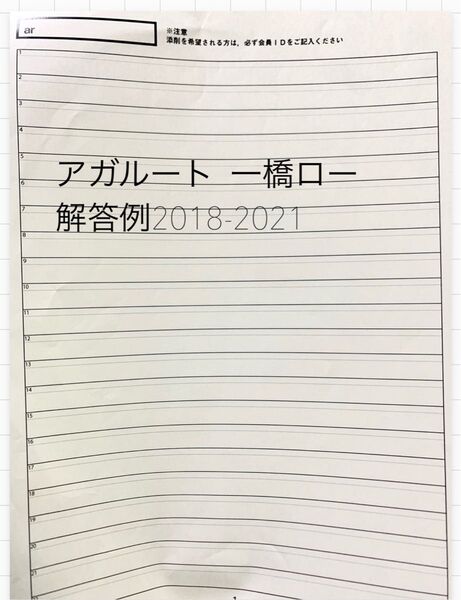 ar
※注意
添削を希望される方は，必ず会員IDをご記入ください
1
2
3
4
5
アガルート 一橋ロー
6
7
解答例2018-2021
8
9
10
11
12
13
14
15
16
17
18
19
20
21
1